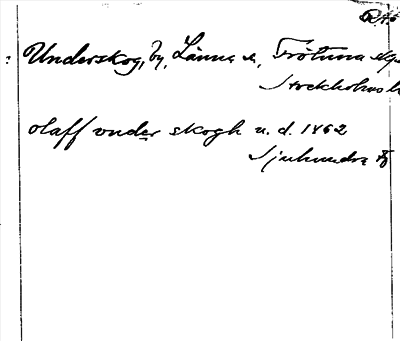 Underskog, by, Länna sn, Frötuna
Stockholms
olaff vnder skogh u. d. 1462
Sjuhundra